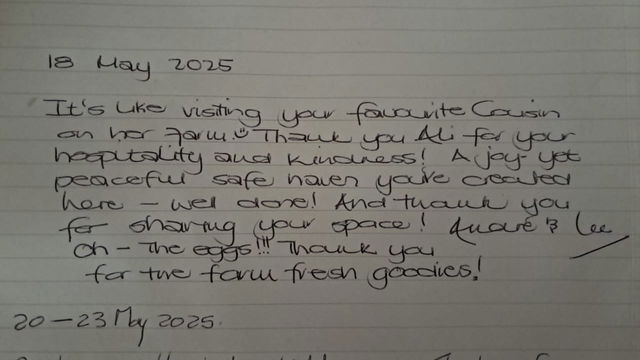 18 May 2025
It's like visiting your favourite Cousin
on her Farm☺ Thank you Ali for your
hospitality and kindness! A joy-yet
peaceful safe haven you've created
here - well done! And thank you
for sharing your space! André & Lee
Oh - the eggs!!! Thank you
for the farm fresh goodies!
20 - 23 May 2025.